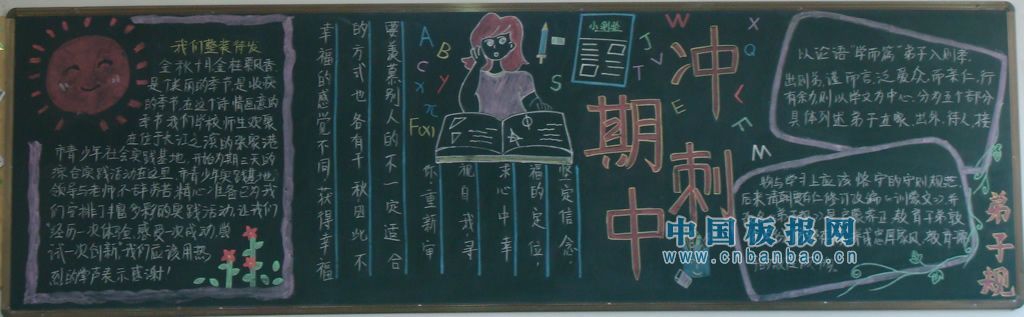 我们整装待发
金秋十月金桂飘香
是个美丽的季节,是收获
的季节,在这个诗情画意的
季节我们学校师生欢聚
在位于长江之滨的张家港
市青少年社会实践基地,开始为期三天的
综合实践活动,在这里,市青少年实践基地
领导与老师不辞劳苦精心准备,已为我
们安排了丰富多彩的实践活动,让我们
“经历一次体会,感受一次成功,尝
试一次创新”,我们应该用热
烈的掌声表示感谢!
要羡慕别人的不一定适合
的方式也各有千秋因此不
幸福的感觉不同,获得幸福
坚定信念
福的定位,
求心中幸
视自我寻
你,重新审
A
B
C
Y
x
π
F(x)
小测验
S
T
J
V
T
W
X
Q
E
L
F
M
期中
冲刺
以论语“学而篇”弟子入则孝,
出则弟,谨而言,泛爱众,而亲仁,行
有余力,则以学文为中心,分为五个部分
具体列述弟子在家、出外、待人、接
物与学习上应该恪守的守则规范
后来清朝贾存仁修订改编《训蒙文》并
弟子规
中国板报网
www.cnbanbao.cn